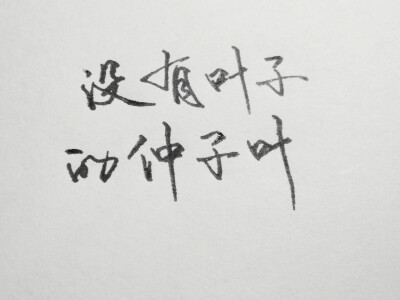 没有叶子
的仲子叶